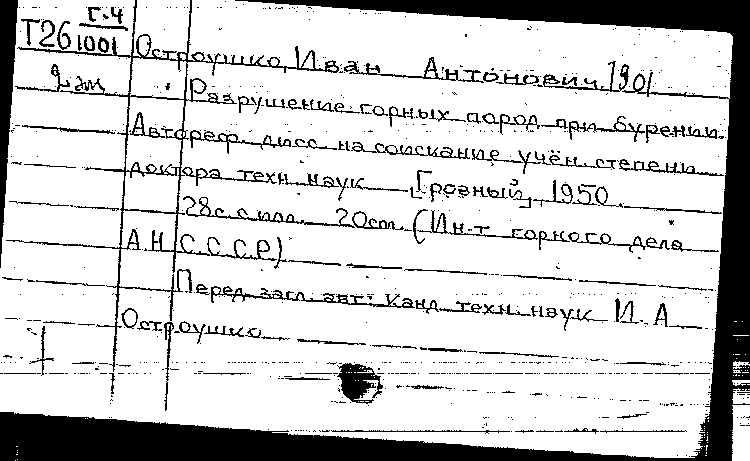 Г.4
Т26 1001
2 эк
Остроушко, Иван Антонович, 1901
Разрушение горных пород при бурении.
Автореф. дисс. на соискание учён. степени
доктора техн. наук [Грозный], 1950.
28с. с илл. 20см. (Ин-т горного дела
А.Н. С.С.С.Р.)
Перед загл. авт: Канд. техн. наук И. А
Остроушко